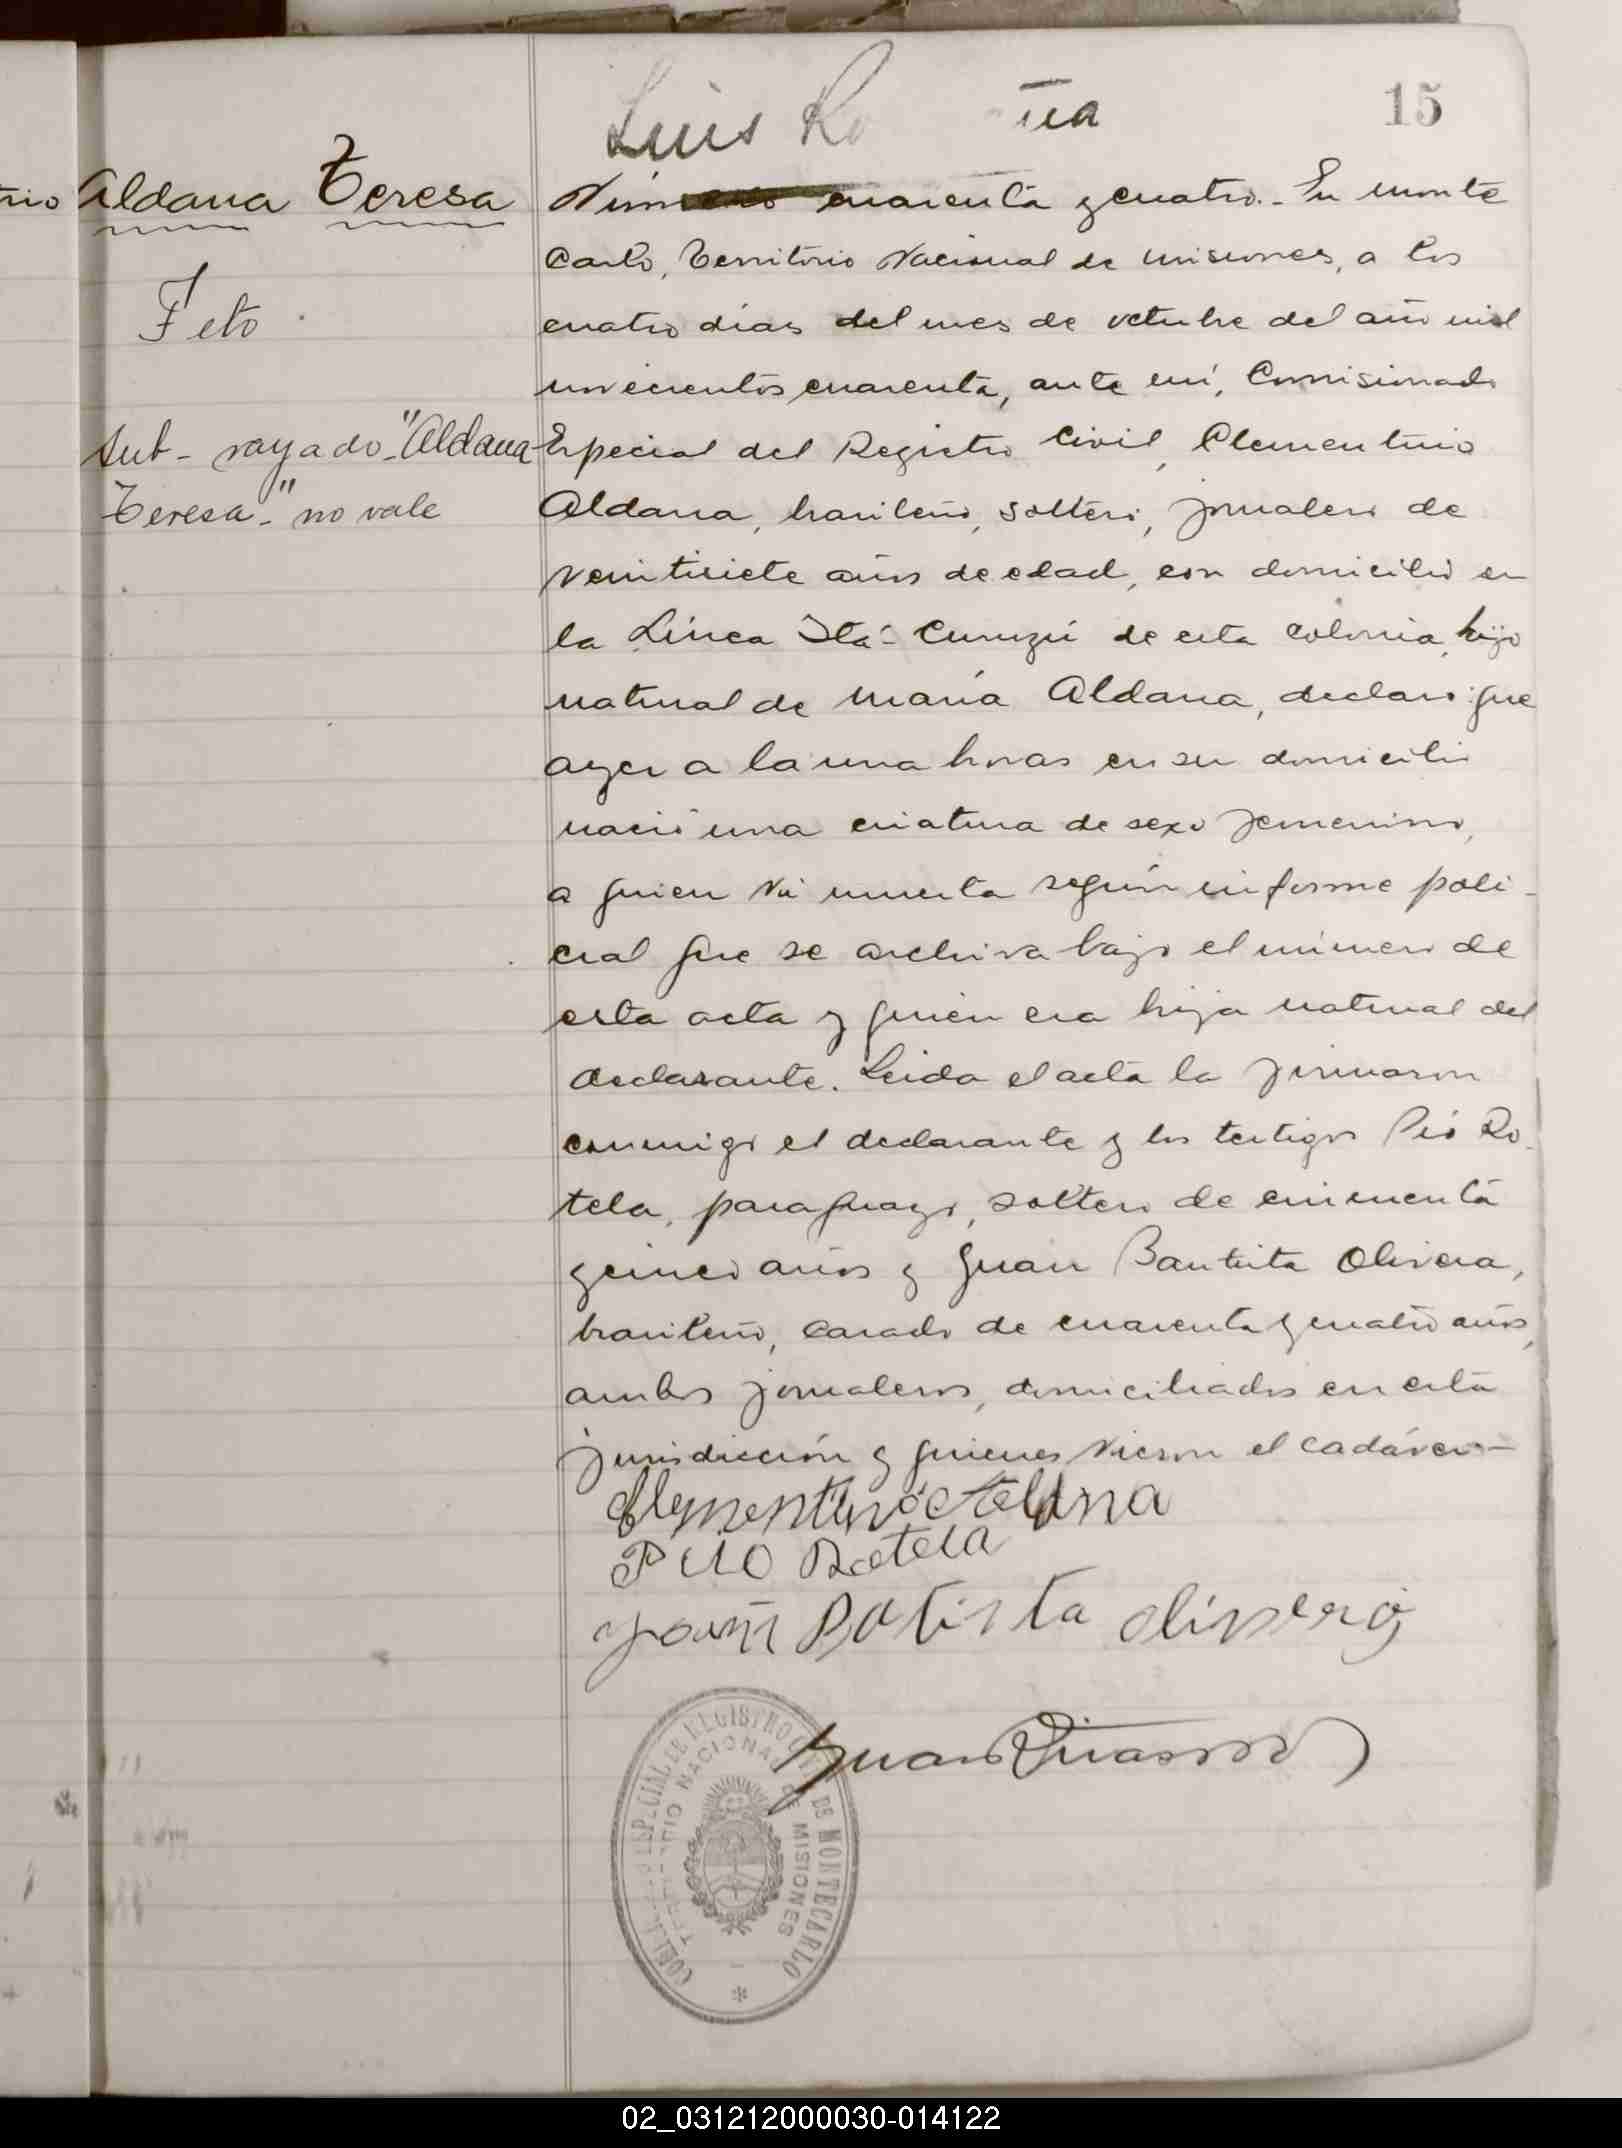 15
Luis Ro
Aldana Teresa
Feto
Sub-rayado "Aldana
Teresa" no vale
Número cuarenta y cuatro.- En Monte
Carlo, Territorio Nacional de Misiones, a los
cuatro días del mes de octubre del año mil
novecientos cuarenta, ante mí, Comisionado
Especial del Registro Civil, Clementino
Aldana, brasileño, soltero, jornalero de
veintisiete años de edad, con domicilio en
la Línea Itá-Curuzú de esta colonia, hijo
natural de María Aldana, declaró: que
ayer a la una horas en su domicilio
nació una criatura de sexo femenino,
a quien vi muerta según informe poli-
cial que se archiva bajo el número de
esta acta y quien era hija natural del
declarante. Leida el acta la firmaron
conmigo el declarante y los testigos Pío Ro-
tela, paraguayo, soltero de cincuenta
y cinco años y Juan Bautista Olivera,
brasileño, casado de cuarenta y cuatro años,
ambos jornaleros, domiciliados en esta
jurisdicción y quienes vieron el cadáver.-
Clementino Aldana
Pio Rotela
Batista
Juan
ESPECIAL DE REGISTRO CIVIL DE MONTECARLO
TERRITORIO NACIONAL DE MISIONES
02_031212000030-014122